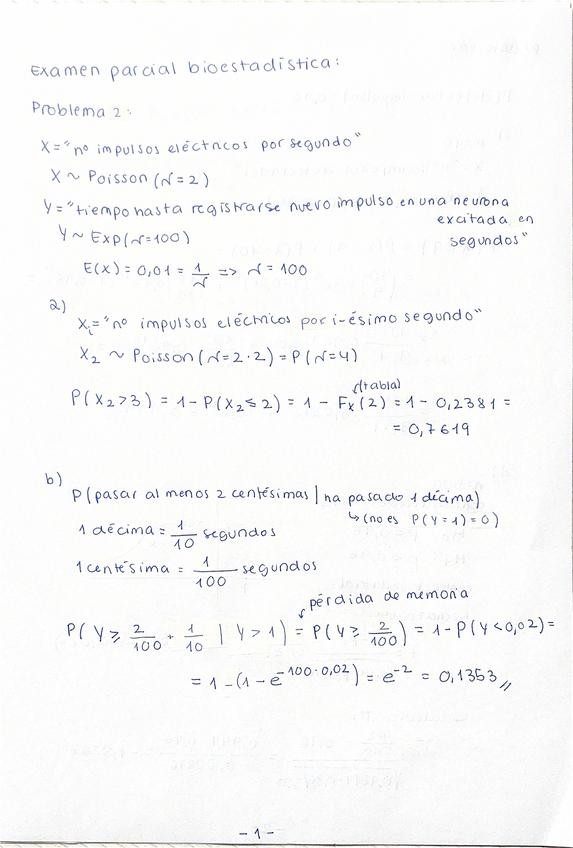 Examen parcial bioestadística:
Problema 2:
X = "nº impulsos eléctricos por segundo"
X ~ Poisson (λ=2)
Y = "tiempo hasta registrarse nuevo impulso en una neurona
excitada, en
segundos"
Y ~ Exp(λ=100)
E(X) = 0,01 = 1/λ => λ = 100
a)
Xi = "nº impulsos eléctricos por i-ésimo segundo"
X2 ~ Poisson (λ=2·2) = P(λ=4)
(tabla)
P(X2>3) = 1 - P(X2≤2) = 1 - Fx(2) = 1 - 0,2381 =
= 0,7619
b)
P(pasar al menos 2 centésimas | ha pasado 1 décima)
1 décima = 1/10 segundos
↳ (no es P(Y=1)=0)
1 centésima = 1/100 segundos
pérdida de memoria
P(Y ≥ 2/100 + 1/10 | Y > 1) = P(Y ≥ 2/100) = 1 - P(Y < 0,02) =
= 1 - (1 - e^-100·0,02) = e^-2 = 0,1353 //
- 1 -